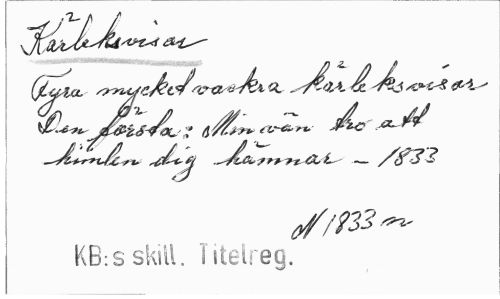 Kärleksvisor
Fyra mycket vackra kärleksvisor
Den första: Min vän tro att
himlen dig hämnar - 1833
N 1833 n
KB:s skill. Titelreg.